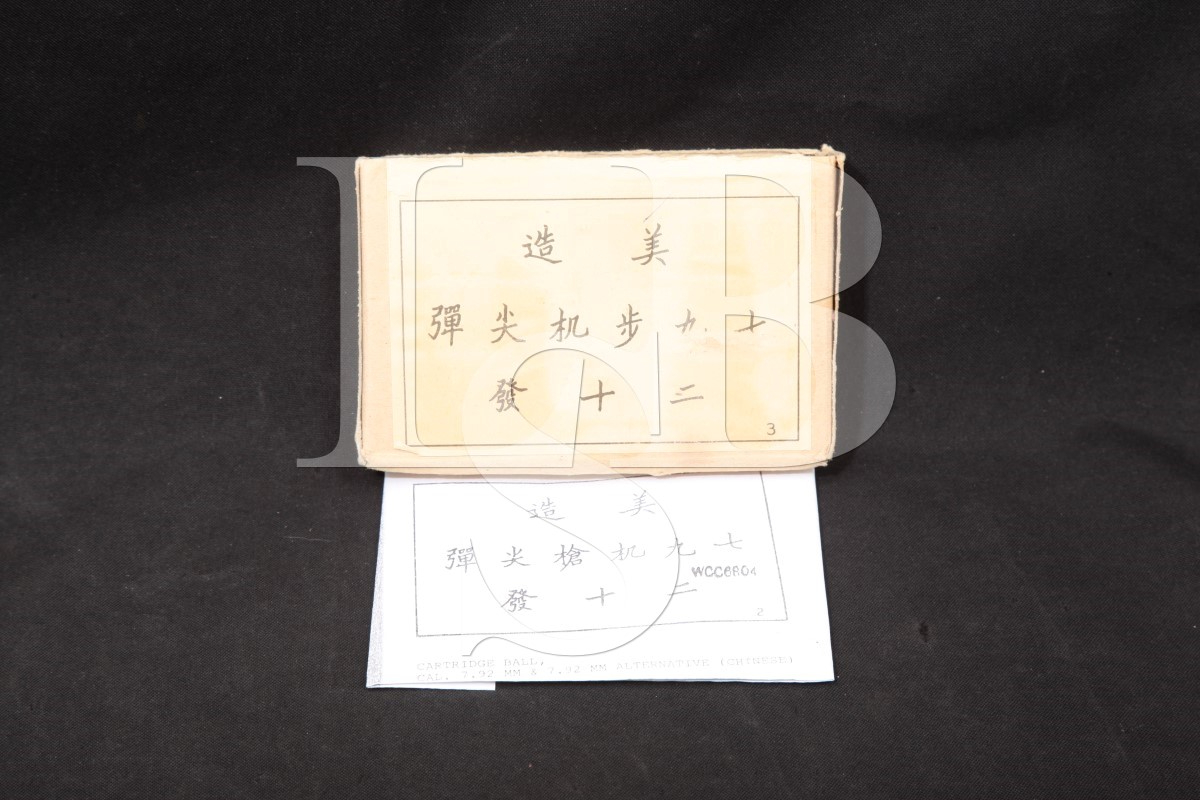 美造
七九步机尖彈
二十發
3
美造
七九机槍尖彈
WCC6804
二十發
2
CARTRIDGE BALL,
CAL. 7.92 MM & 7.92 MM ALTERNATIVE (CHINESE)